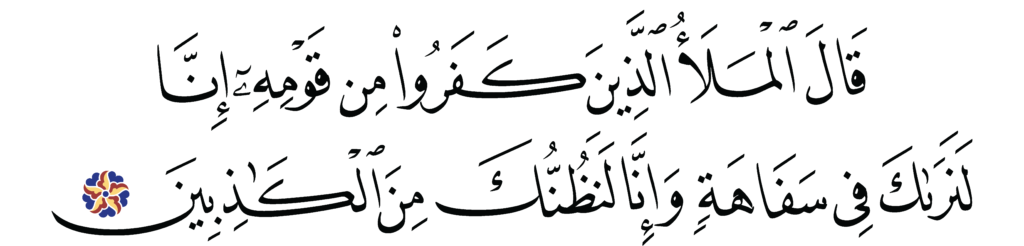 قَالَ ٱلْمَلَأُ ٱلَّذِينَ كَفَرُوا۟ مِن قَوْمِهِۦٓ إِنَّا
لَنَرَىٰكَ فِى سَفَاهَةٍ وَإِنَّا لَنَظُنُّكَ مِنَ ٱلْكَـٰذِبِينَ